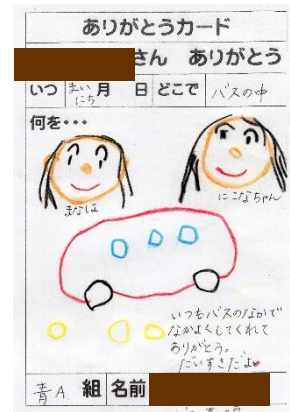 ありがとうカード
さん ありがとう
いつ まいにち 月 日 どこで バスの中
何を・・・
まなは
にこなちゃん
いつもバスのなかで
なかよくしてくれて
ありがとう。
だいすきだよ♥
青A 組 名前